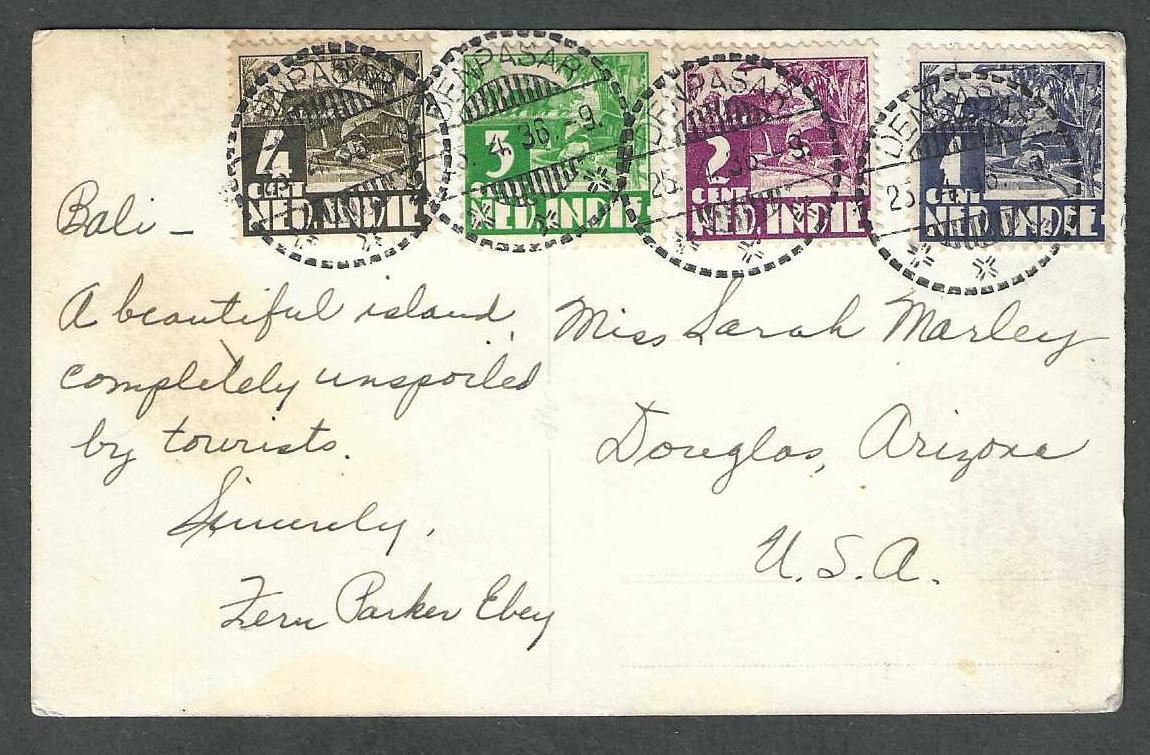 4
CENT
NED. INDIE
3
NED. INDIE
2
CENT
NED. INDIE
1
CENT
NED. INDIE
DENPASAR
DENPASAR
4 36. 9.
DENPASAR
DENPASAR
Bali –
A beautiful island,
completely unspoiled
by tourists.
Sincerely,
Fern Parker Ebey
Miss Sarah Marley
Douglas, Arizona
U.S.A.